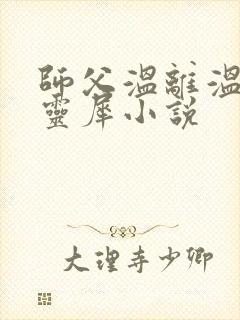 師父溫離溫
靈犀小說
大理寺少卿